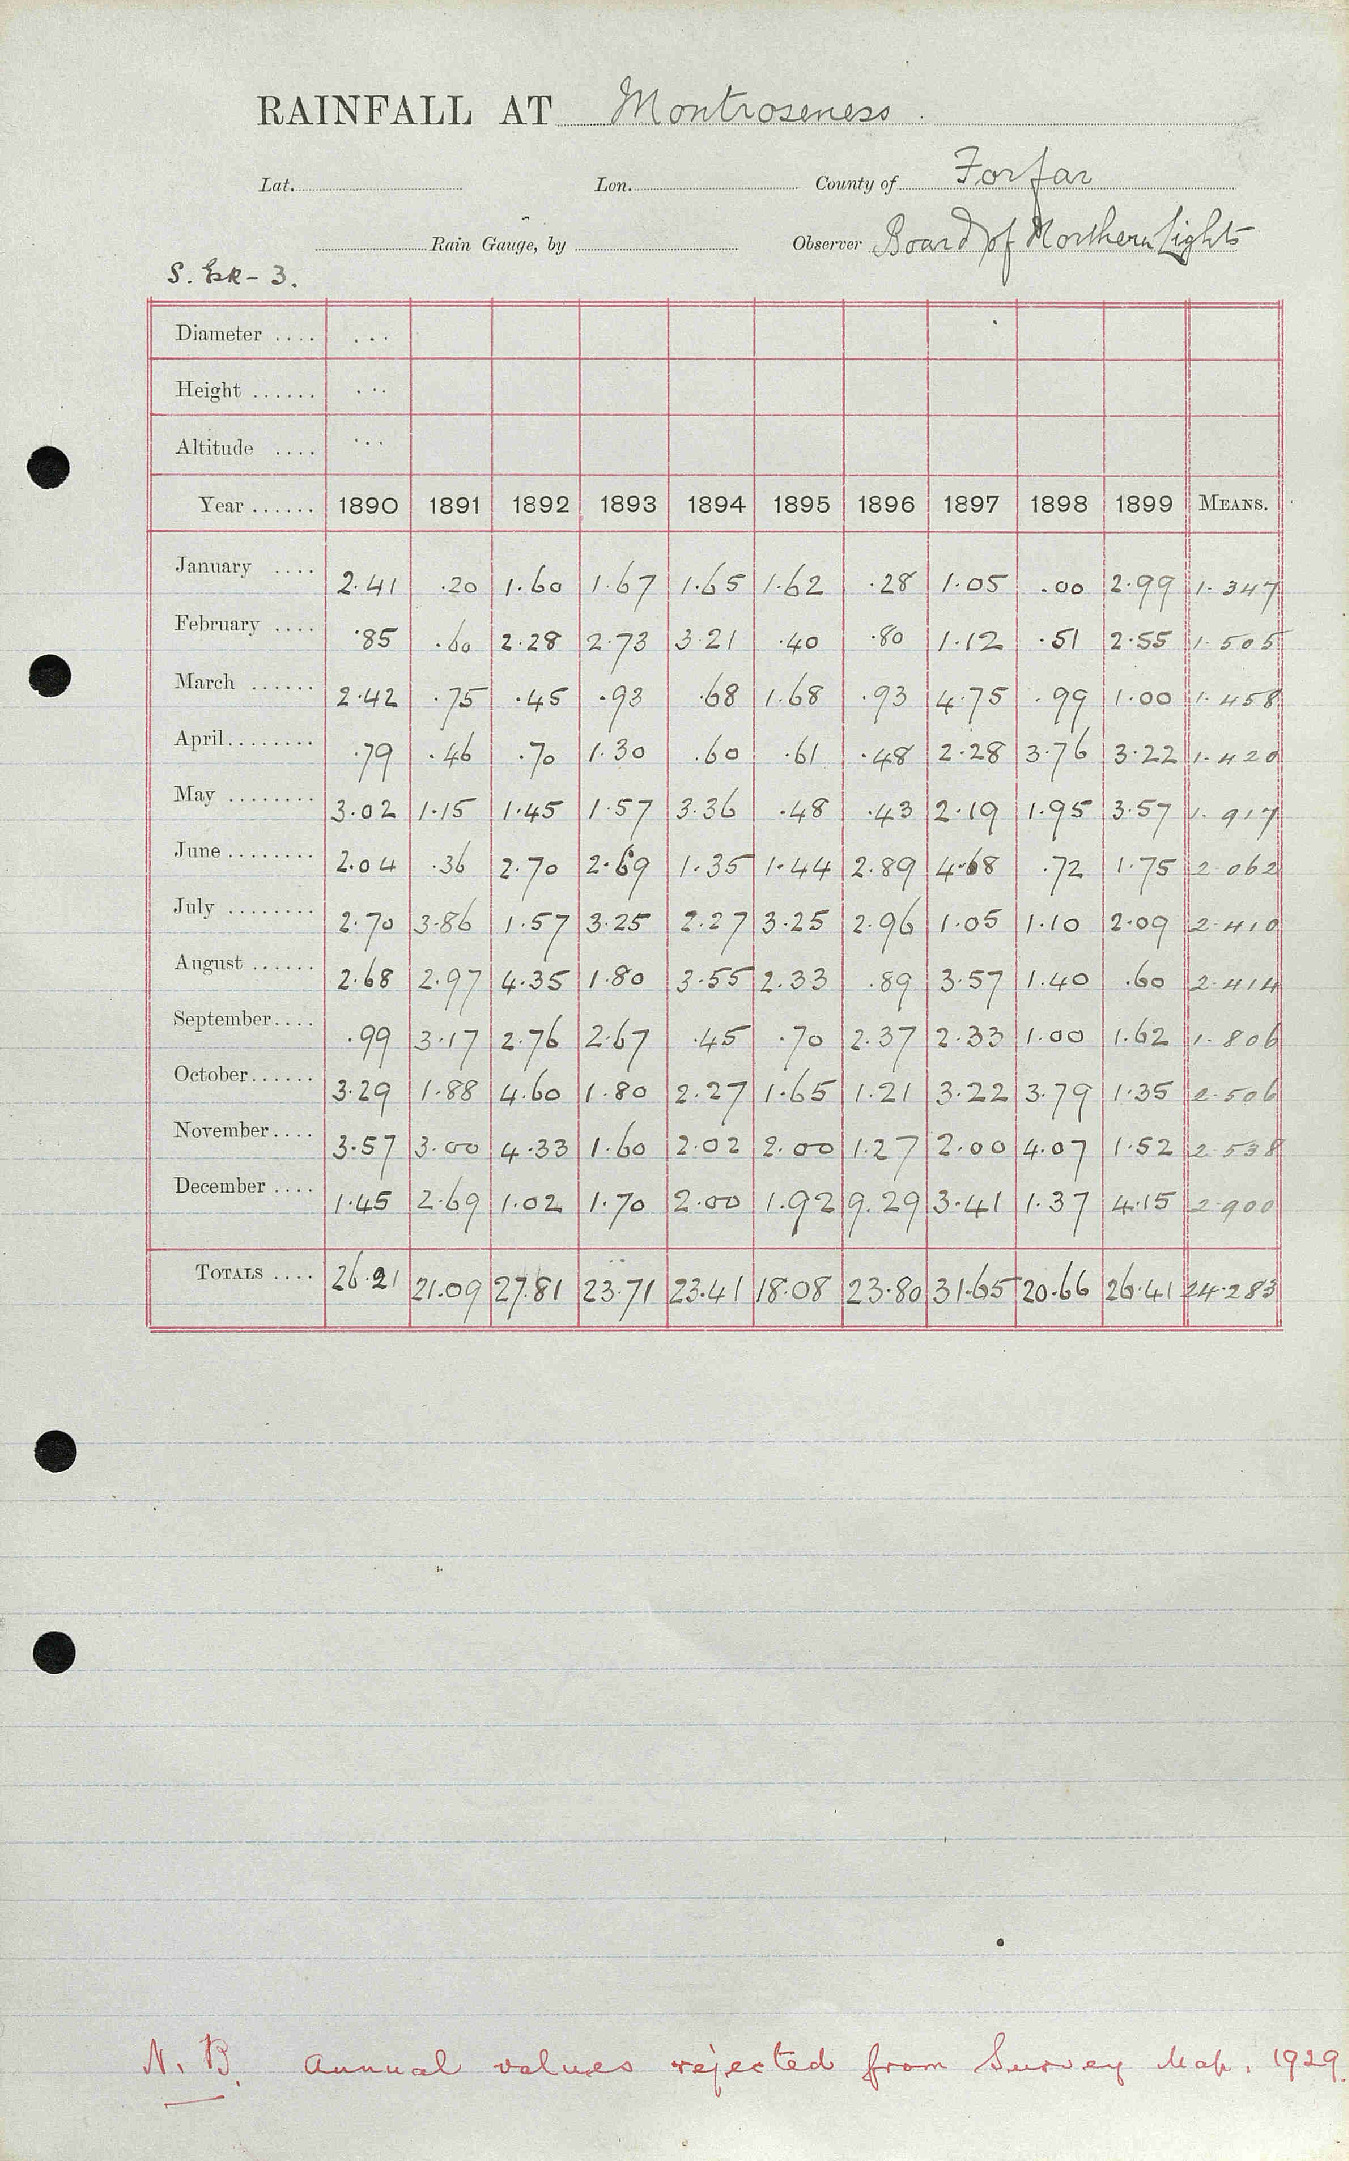 RAINFALL AT Montroseness.
Lat. Lon. County of Forfar
Rain Gauge, by Observer Board of Northern Lights
S. Esk - 3.
Diameter .... ...
Height ...... ...
Altitude .... ...
Year ...... 1890 1891 1892 1893 1894 1895 1896 1897 1898 1899 MEANS.
January .... 2.41 .20 1.60 1.67 1.65 1.62 .28 1.05 .00 2.99 1.347
February .... .85 .60 2.28 2.73 3.21 .40 .80 1.12 .51 2.55 1.505
March ...... 2.42 .75 .45 .93 .68 1.68 .93 4.75 .99 1.00 1.458
April........ .79 .46 .70 1.30 .60 .61 .48 2.28 3.76 3.22 1.420
May ........ 3.02 1.15 1.45 1.57 3.36 .48 .43 2.19 1.95 3.57 1.917
June ........ 2.04 .36 2.70 2.69 1.35 1.44 2.89 4.68 .72 1.75 2.062
July ........ 2.70 3.86 1.57 3.25 2.27 3.25 2.96 1.05 1.10 2.09 2.410
August ...... 2.68 2.97 4.35 1.80 3.55 2.33 .89 3.57 1.40 .60 2.414
September.... .99 3.17 2.76 2.67 .45 .70 2.37 2.33 1.00 1.62 1.806
October...... 3.29 1.88 4.60 1.80 2.27 1.65 1.21 3.22 3.79 1.35 2.506
November.... 3.57 3.00 4.33 1.60 2.02 2.00 1.27 2.00 4.07 1.52 2.538
December .... 1.45 2.69 1.02 1.70 2.00 1.92 9.29 3.41 1.37 4.15 2.900
TOTALS .... 26.21 21.09 27.81 23.71 23.41 18.08 23.80 31.65 20.66 26.41 24.283
N. B. Annual values rejected from Survey Map. 1929.